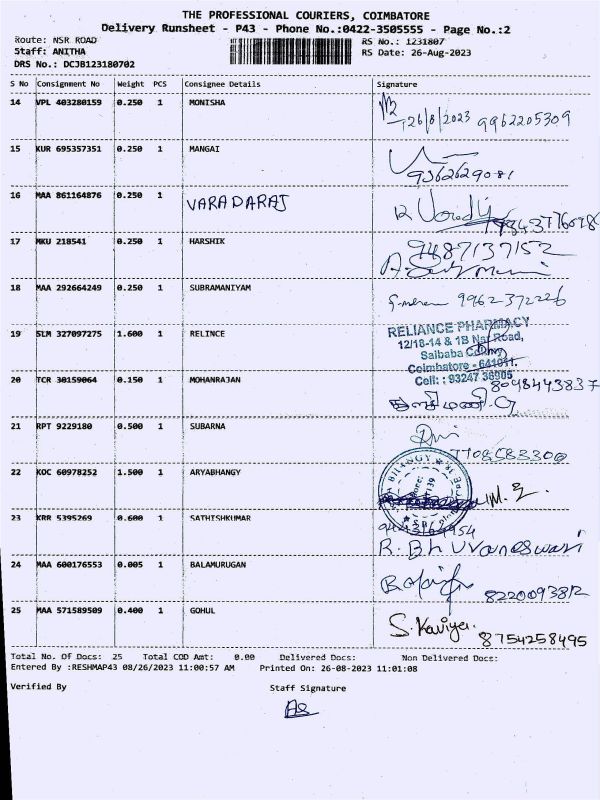 THE PROFESSIONAL COURIERS, COIMBATORE
Delivery Runsheet - P43 - Phone No.:0422-3505555 - Page No.:2
Route: NSR ROAD RS No.: 1231807
Staff: ANITHA RS Date: 26-Aug-2023
DRS No.: DCJB123180702
S No Consignment No Weight PCS Consignee Details Signature
14 VPL 403280159 0.250 1 MONISHA
26/8/2023 9962205309
15 KUR 695357351 0.250 1 MANGAI
9362629081
16 MAA 861164876 0.250 1 VARADARAJ
17 MKU 218541 0.250 1 HARSHIK 9487137152
18 MAA 292664249 0.250 1 SUBRAMANIYAM
9962-372226
19 SLM 327097275 1.600 1 RELINCE
RELIANCE PHARMACY
12/18-14 & 1B Nsr Road,
Saibaba Colony
Coimbatore - 641011.
Cell: : 93247 36905
20 TCR 30159064 0.150 1 MOHANRAJAN 8098443837
21 RPT 9229180 0.500 1 SUBARNA
7708583300
22 KOC 60978252 1.500 1 ARYABHANGY
23 KRR 5395269 0.600 1 SATHISHKUMAR
R. Bhuvaneswari
24 MAA 600176553 0.005 1 BALAMURUGAN
8220093812
25 MAA 571589509 0.400 1 GOHUL
S. Kaviya. 8754258495
Total No. Of Docs: 25 Total COD Amt: 0.00 Delivered Docs: Non Delivered Docs:
Entered By :RESHMAP43 08/26/2023 11:00:57 AM Printed On: 26-08-2023 11:01:08
Verified By Staff Signature